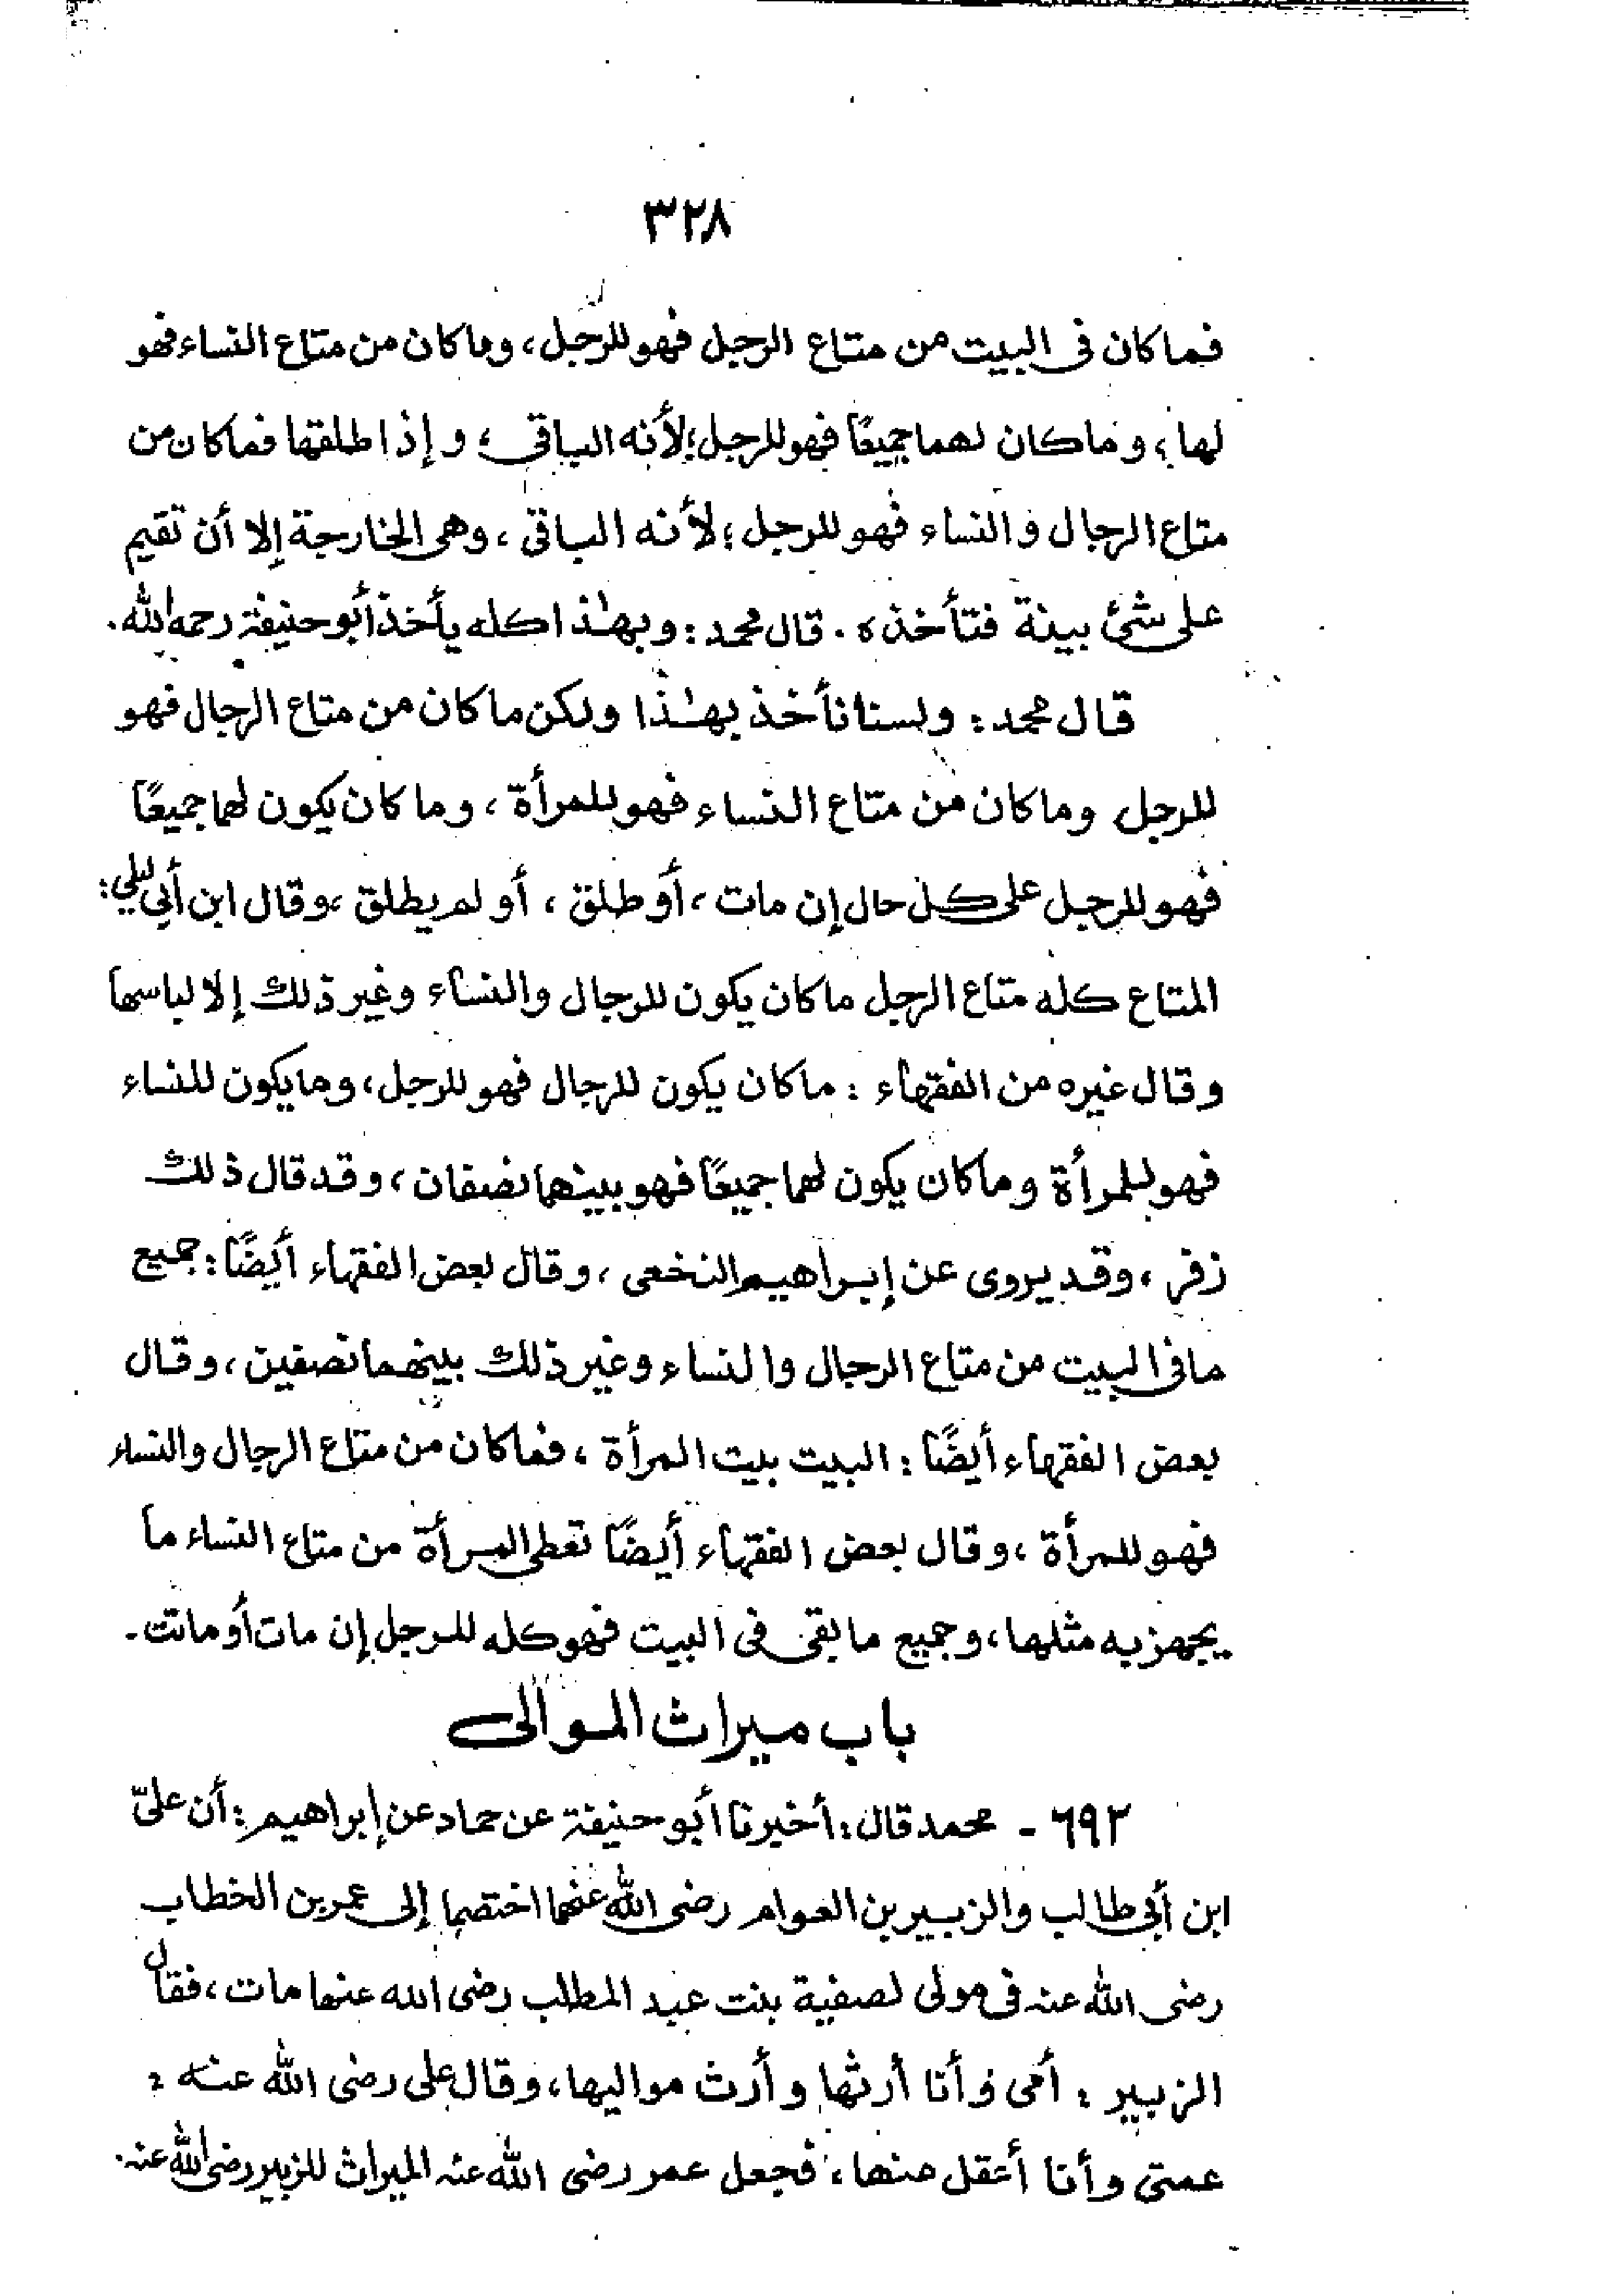 ٣٢٨
فما كان فى البيت من متاع الرجل فهو للرجل، وما كان من متاع النساء فهو
لها، وما كان لهما جميعًا فهو للرجل؛ لأنه الباقى، وإذا طلقها فما كان من
متاع الرجال والنساء فهو للرجل؛ لأنه الباقى، وهى الخارجة إلا أن تقيم
على شئ بينة فتأخذه. قال محمد: وبهٰذا كله يأخذ أبو حنيفة رحمه الله.
قال محمد: ولسنا نأخذ بهٰذا ولكن ما كان من متاع الرجال فهو
للرجل وما كان من متاع النساء فهو للمرأة، وما كان يكون لهما جميعًا
فهو للرجل على كل حال إن مات، أو طلق، أو لم يطلق، وقال ابن أبي ليلي:
المتاع كله متاع الرجل ما كان يكون للرجال والنساء وغير ذلك إلا لباسها
وقال غيره من الفقهاء: ما كان يكون للرجال فهو للرجل، وما يكون للنساء
فهو للمرأة وما كان يكون لهما جميعًا فهو بينهما نصفان، وقد قال ذلك
زفر، وقد يروى عن إبراهيم النخعى، وقال بعض الفقهاء أيضًا: جميع
ما فى البيت من متاع الرجال والنساء وغير ذلك بينهما نصفين، وقال
بعض الفقهاء أيضًا: البيت بيت المرأة، فما كان من متاع الرجال والنساء
فهو للمرأة، وقال بعض الفقهاء أيضًا تعطى المرأة من متاع النساء ما
يجهز به مثلها، وجميع ما بقى فى البيت فهو كله للرجل إن مات أو ماتت.
باب ميراث الموالى
٦٩٢ - محمد قال: أخبرنا أبو حنيفة عن حماد عن إبراهيم: أن علىّ
ابن أبى طالب والزبير بن العوام رضى الله عنهما اختصما إلى عمر بن الخطاب
رضى الله عنه فى مولى لصفية بنت عبد المطلب رضى الله عنها مات، فقال
الزبير: أمى وأنا أرثها وأرث مواليها، وقال على رضى الله عنه:
عمتى وأنا أعقل عنها، فجعل عمر رضى الله عنه الميراث للزبير رضى الله عنه.